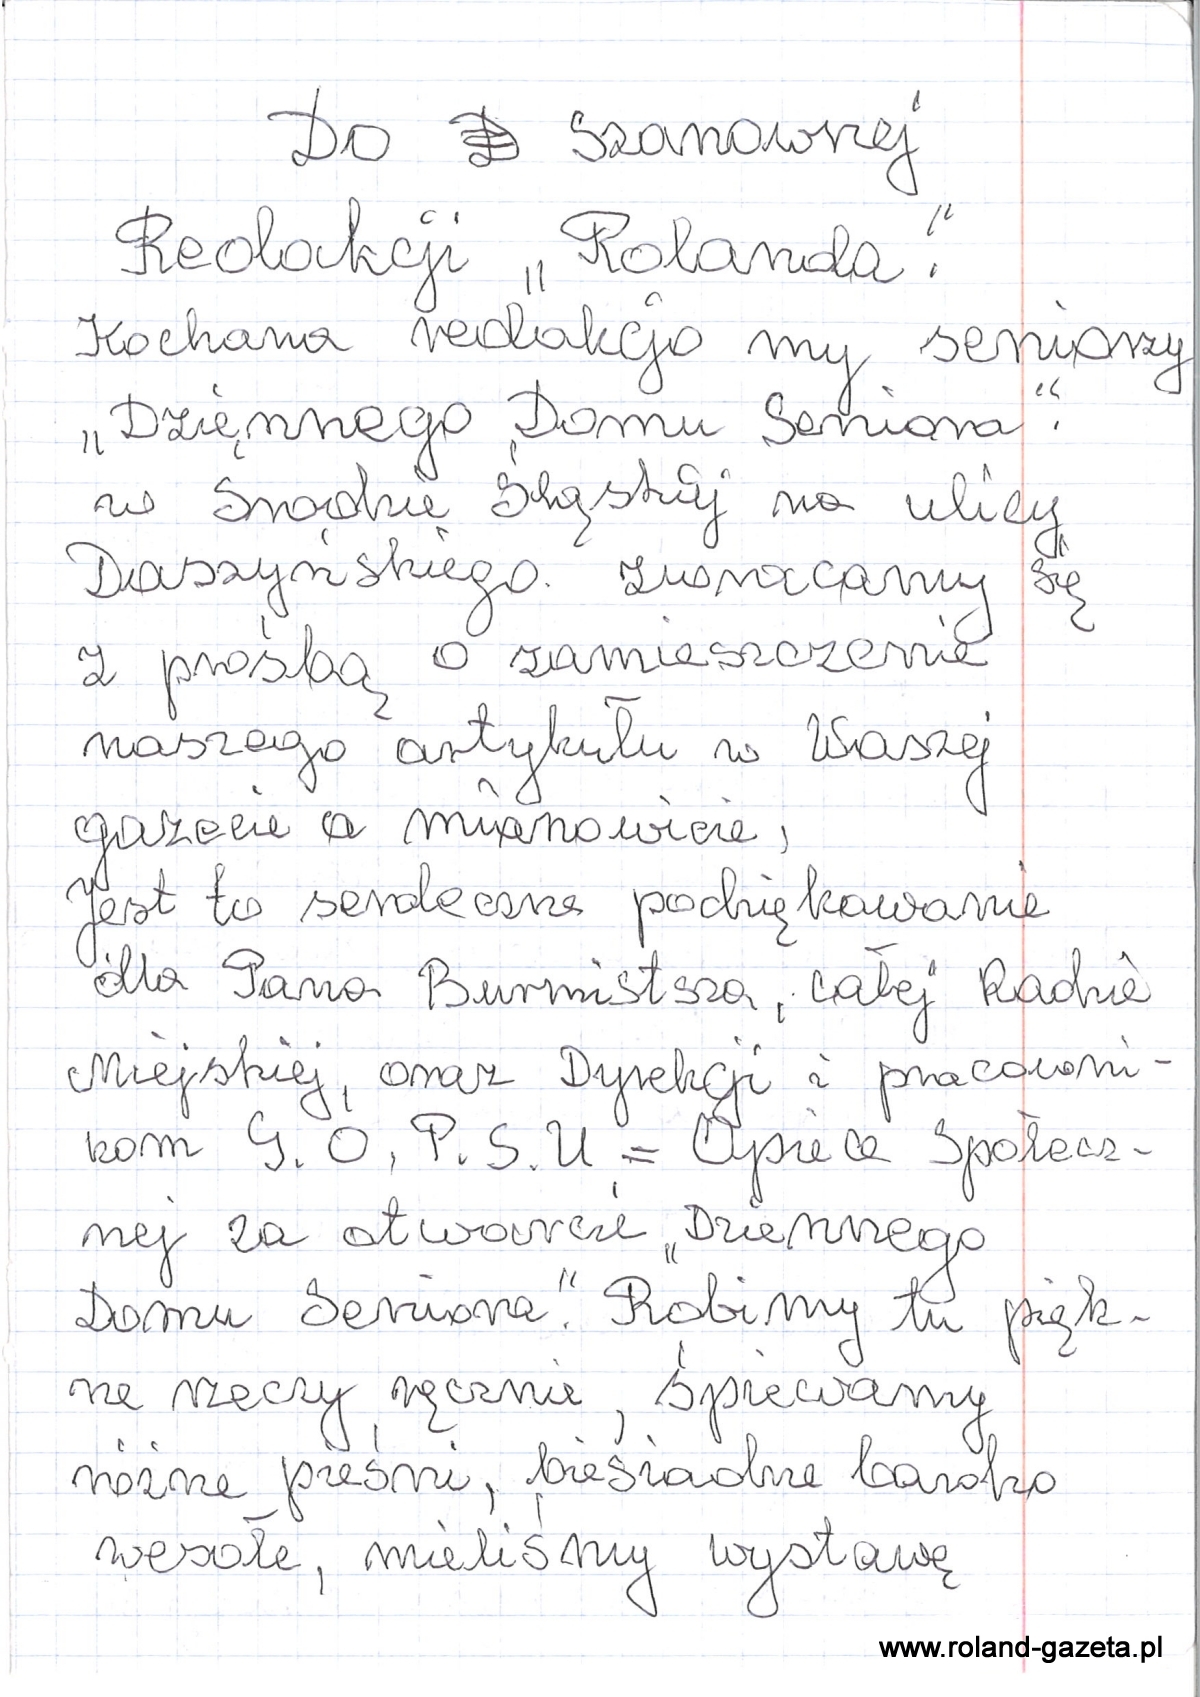 Do Szanownej
Redakcji „Rolanda”.
Kochana redakcjo my seniorzy
„Dzięnnego Domu Seniora”.
w Środzie Śląskiej na ulicy
Daszyńskiego. zwracamy się
z prośbą o zamieszczenie
naszego artykułu w Waszej
gazecie a mianowicie,
Jest to serdeczne podziękowanie
dla Pana Burmistsza, całej Radzie
Miejskiej, oraz Dyrekcji i pracowni-
kom G.O,P.S.U = Opiece Społecz-
nej za otwarcie „Dziennego
Domu Seniora”. Robimy tu pięk-
ne rzeczy ręcznie, śpiewamy
różne pieśni, biesiadne bardzo
wesołe, mieliśmy wystawę
www.roland-gazeta.pl